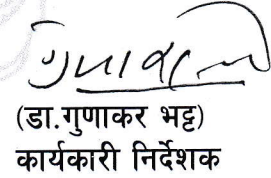 (डा.गुणाकर भट्ट)
कार्यकारी निर्देशक